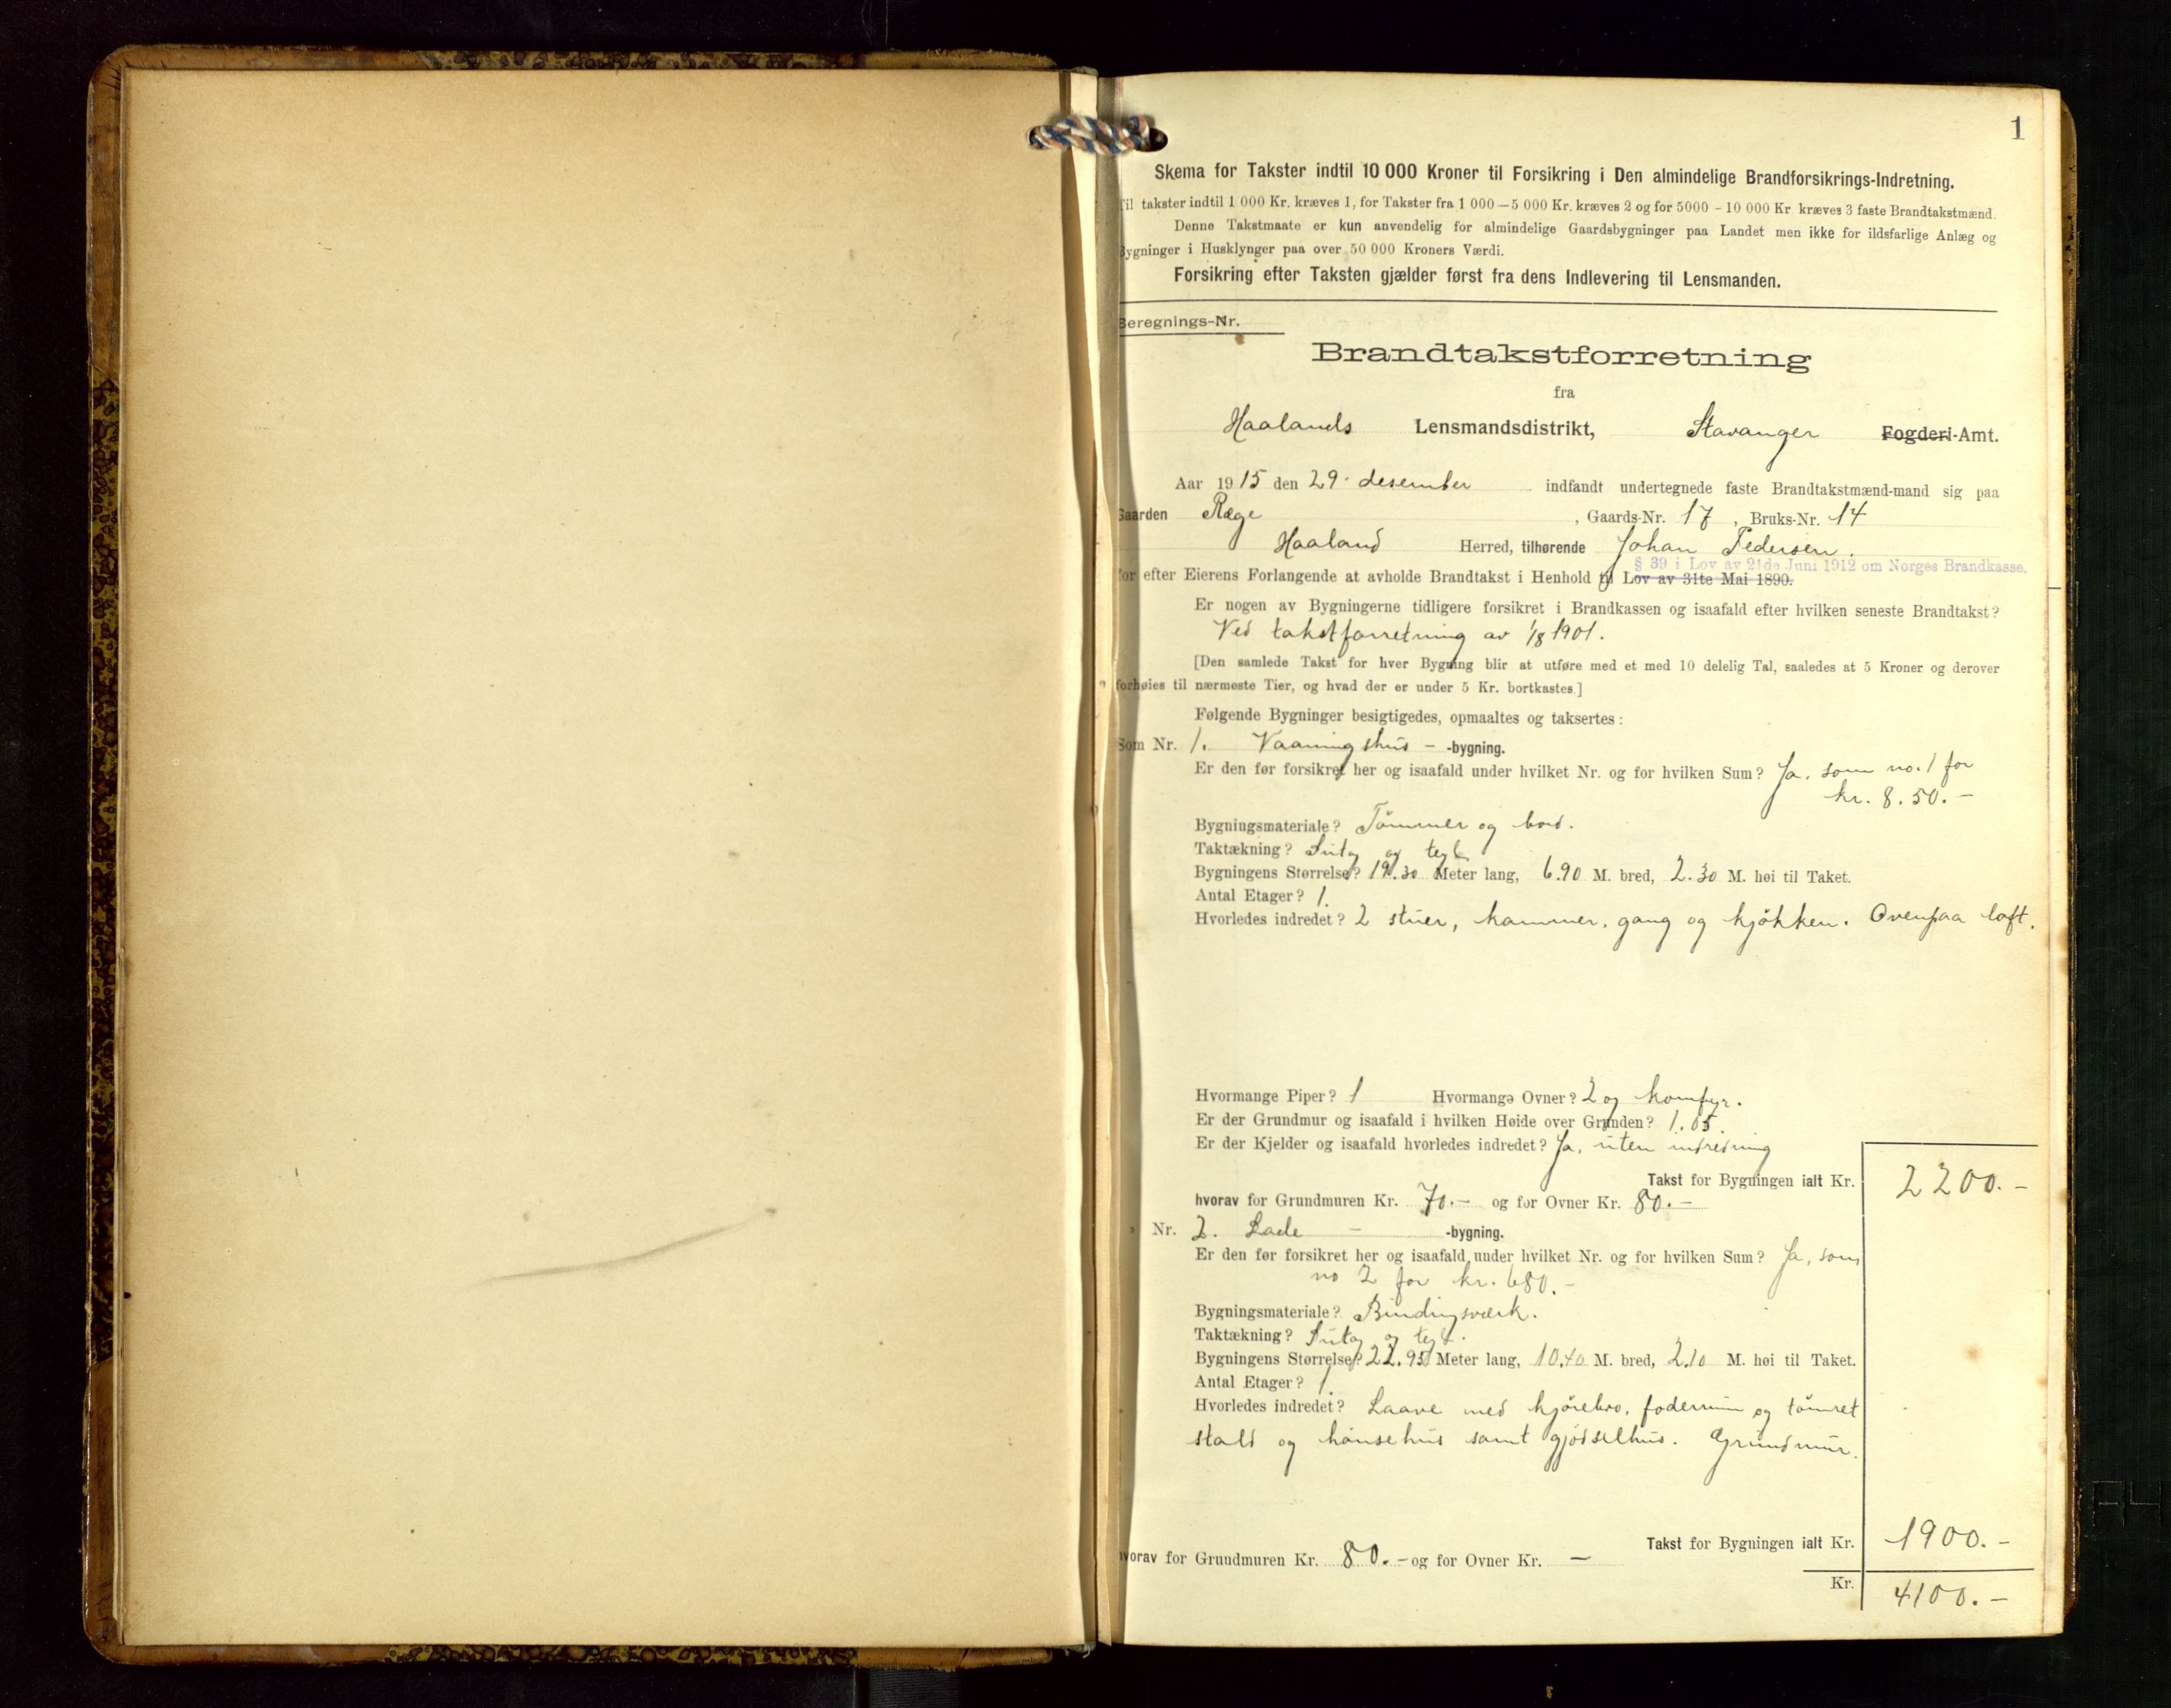 1
Skema for Takster indtil 10 000 Kroner til Forsikring i Den almindelige Brandforsikrings-Indretning.
Til takster indtil 1 000 Kr. kræves 1, for Takster fra 1 000 — 5 000 Kr. kræves 2 og for 5000 - 10 000 Kr kræves 3 faste Brandtakstmænd.
Denne Takstmaate er kun anvendelig for almindelige Gaardsbygninger paa Landet men ikke for ildsfarlige Anlæg og
Bygninger i Husklynger paa over 50 000 Kroners Værdi.
Forsikring efter Taksten gjælder først fra dens Indlevering til Lensmanden.
Beregnings-Nr.
Brandtakstforretning
fra
Haalands Lensmandsdistrikt, Stavanger Fogderi-Amt.
Aar 1915 den 29. desember indfandt undertegnede faste Brandtakstmænd-mand sig paa
Gaarden Ræge, Gaards-Nr. 17, Bruks-Nr. 14
Haaland Herred, tilhørende Johan Pedersen.
§ 39 i Lov av 21de Juni 1912 om Norges Brandkasse.
for efter Eierens Forlangende at avholde Brandtakst i Henhold til Lov av 31te Mai 1890.
Er nogen av Bygningerne tidligere forsikret i Brandkassen og isaafald efter hvilken seneste Brandtakst?
Ved takstforretning av 1/8 1901.
[Den samlede Takst for hver Bygning blir at utføre med et med 10 delelig Tal, saaledes at 5 Kroner og derover
forhøies til nærmeste Tier, og hvad der er under 5 Kr. bortkastes.]
Følgende Bygninger besigtigedes, opmaaltes og taksertes:
Som Nr. 1. Vaaningshus - -bygning.
Er den før forsikret her og isaafald under hvilket Nr. og for hvilken Sum? Ja, som no. 1 for
kr. 8.50.-
Bygningsmateriale? Tömmer og bord.
Taktækning? Sutag og tegl
Bygningens Størrelse? 19.30 Meter lang, 6.90 M. bred, 2.30 M. høi til Taket.
Antal Etager? 1.
Hvorledes indredet? 2 stuer, kammer, gang og kjökken. Ovenpaa loft.
Hvormange Piper? 1 Hvormange Ovner? 2 og komfyr.
Er der Grundmur og isaafald i hvilken Høide over Grunden? 1.05.
Er der Kjelder og isaafald hvorledes indredet? Ja, uten indredning
Takst for Bygningen ialt Kr. 2200.-
hvorav for Grundmuren Kr. 70.- og for Ovner Kr. 80.-
Nr. 2. Lade - -bygning.
Er den før forsikret her og isaafald under hvilket Nr. og for hvilken Sum? Ja, som
no 2 for kr. 680.-
Bygningsmateriale? Bindingsværk.
Taktækning? Sutag og tegl.
Bygningens Størrelse? 22.95 Meter lang, 10.40 M. bred, 2.10 M. høi til Taket.
Antal Etager? 1.
Hvorledes indredet? Laave med kjörebro, foderrum og tömret
stald og hönsehus samt gjödselhus. Grundmur.
Takst for Bygningen ialt Kr. 1900.-
hvorav for Grundmuren Kr. 80.- og for Ovner Kr. —
Kr. 4100.-